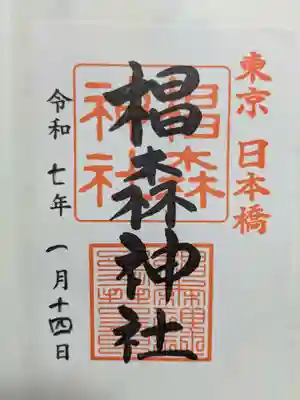 東京 日本橋
椙森神社
椙森
神社
令和七年 一月十四日